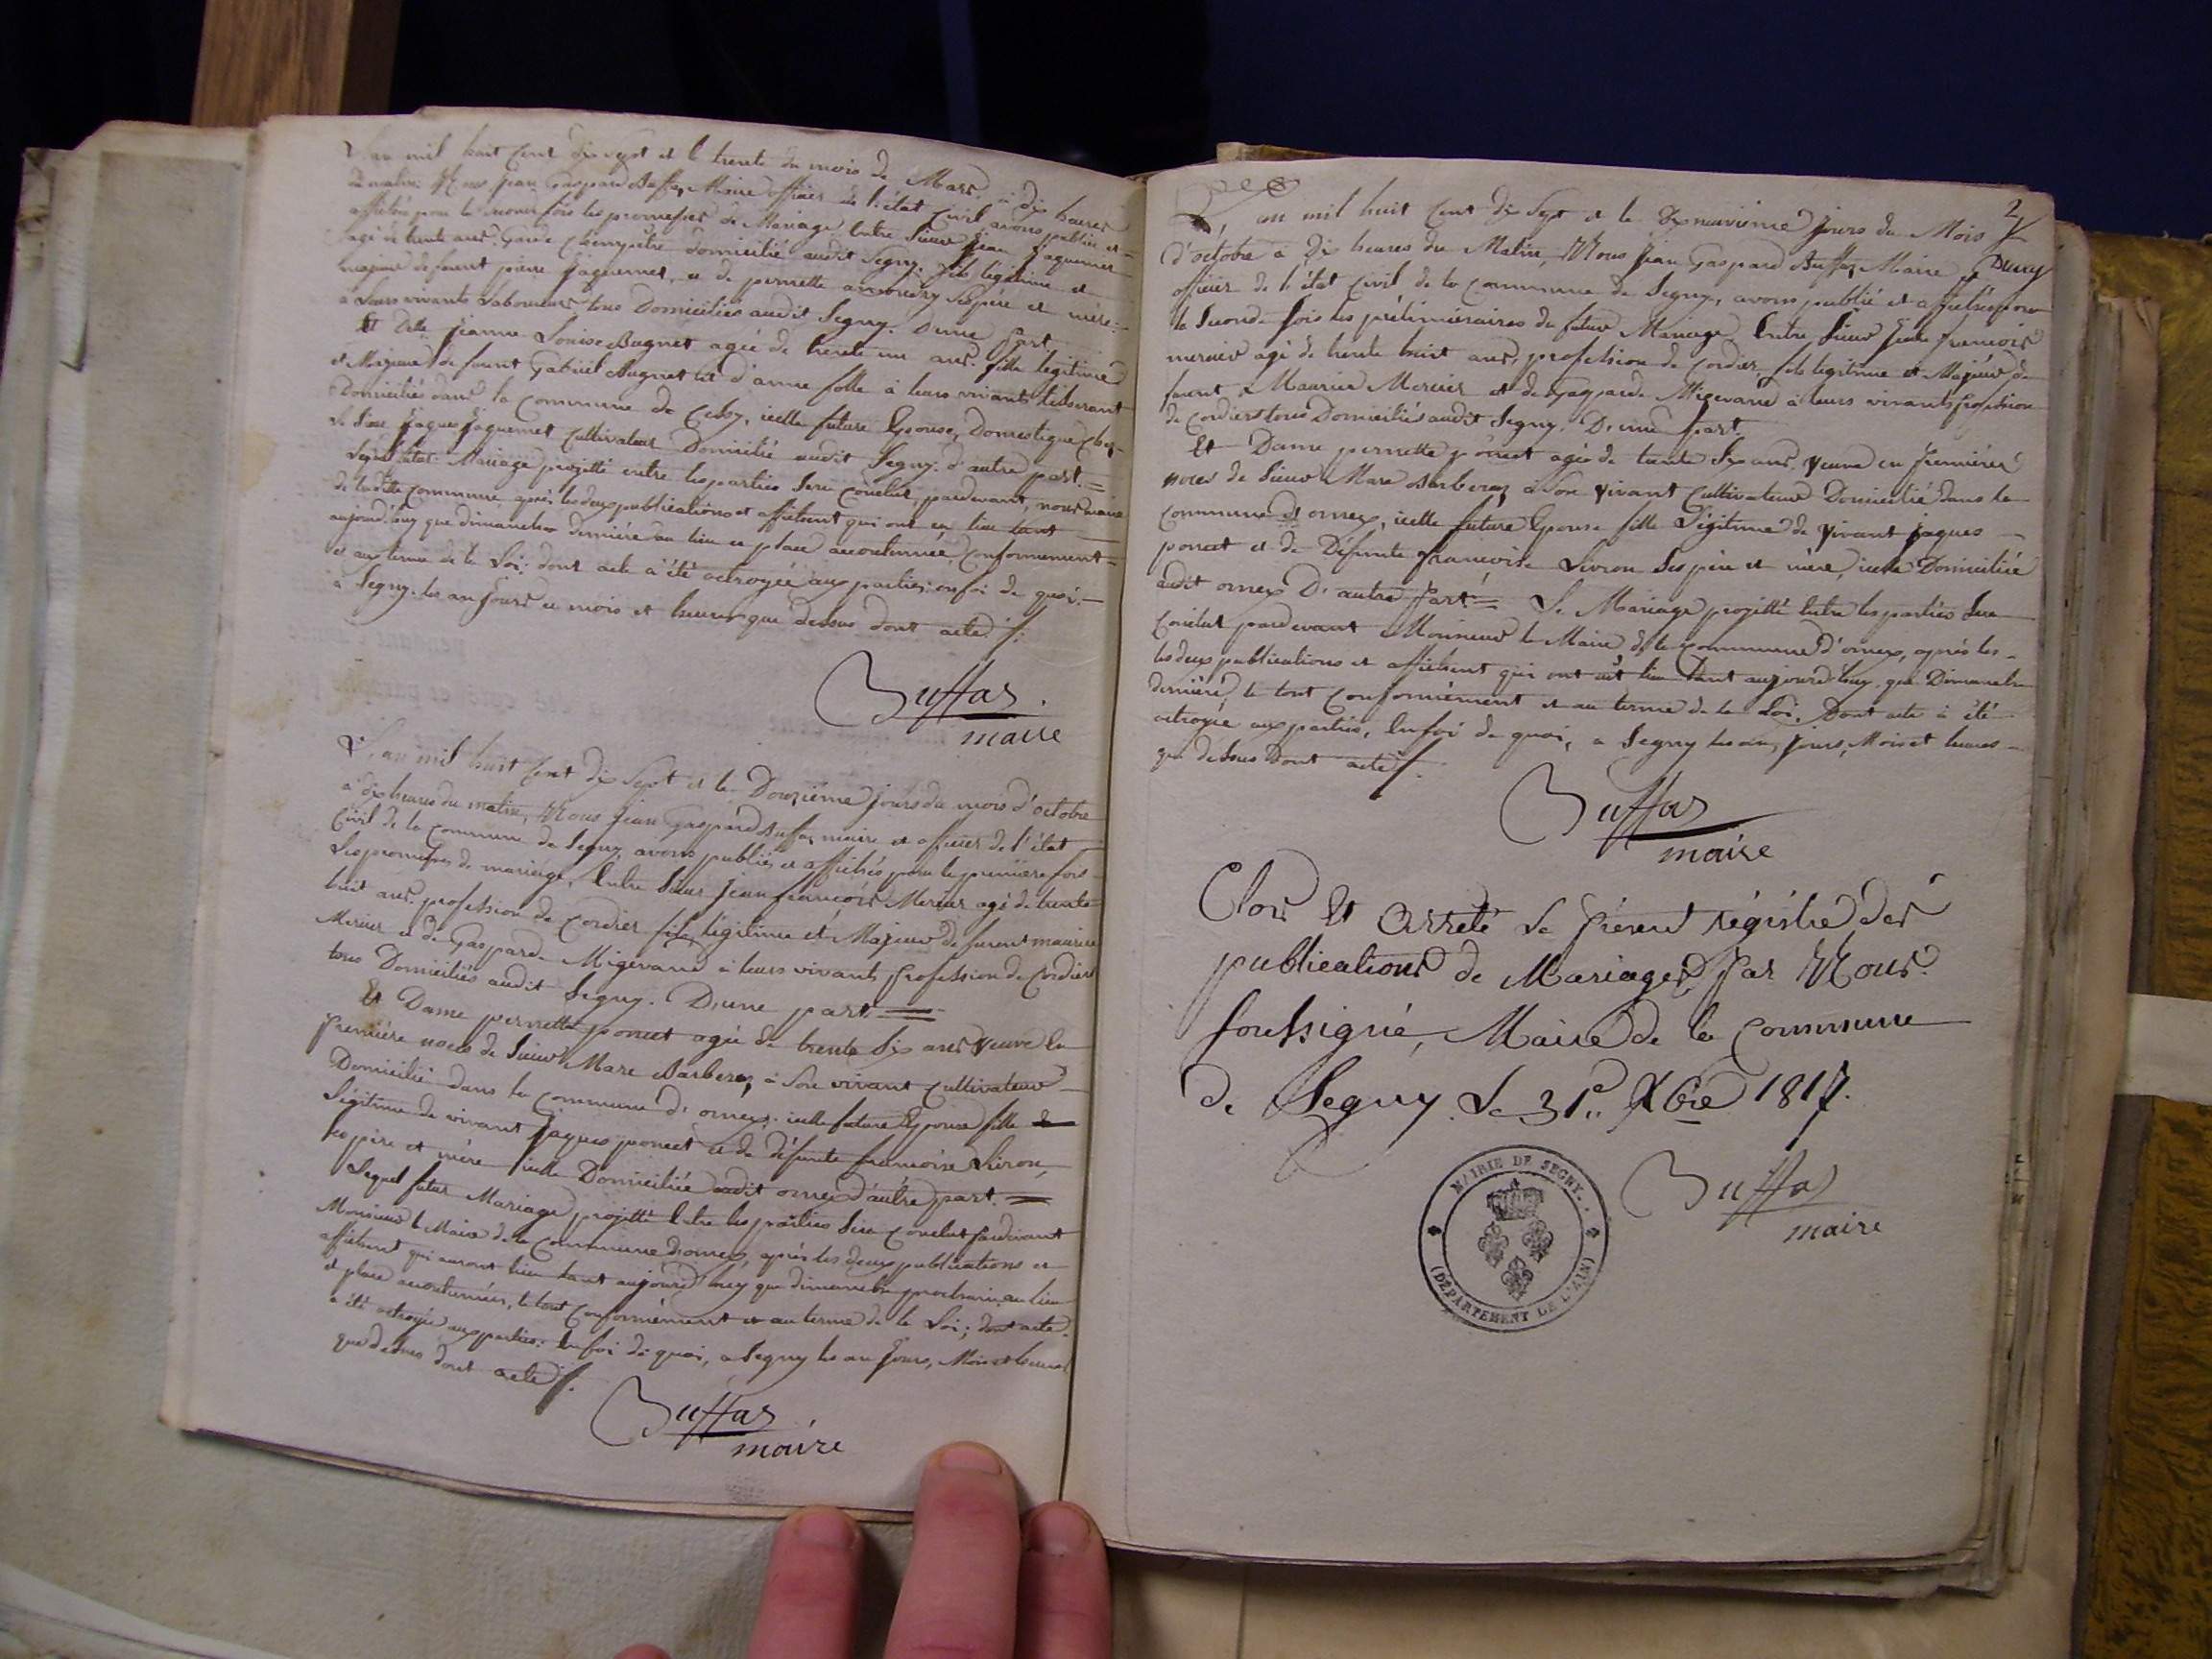 L'an mil huit Cent dix sept et le trente du mois de Mars, à dix heures
du matin. Nous Jean Gaspard Buffaz Maire officier de l'état Civil avons publié et
affichés pour la seconde fois les promesses de Mariage, Entre Sieur Jean Jaquemet
agé de trente ans. Garde Champêtre domicilié audit Segny. fils légitime et
majeur de feu pierre Jaquemet, et de pernette ses père et mère
à Leurs vivants Laboureurs tous Domiciliés audit Segny. D'une part.
Et Delle Jeanne Louise Bugnet agée de trente un ans. fille légitime
et Majeure de feu Gabriel Bugnet et d'anne folle à leurs vivants
Domiciliés dans la Commune de Cessy, icelle future Epouse, Domestique chez
le Sieur Jaques Jaquemet Cultivateur Domicilié audit Segny. d'autre part. =
Lequel Mariage projetté entre les parties Sera Conclut, pardevant, nous maire
de laditte Commune, après les deux publications et affichent qui ont eu lieu tant
aujourd'huy que dimanche dernière au lieu et place accoutumée, Conformement
et au terme de la Loi: dont acte a été octroyée aux parties: en foi de quoi.
à Segny. les an Jours et mois et heures que dessus dont acte /.
Buffaz
maire
L'an mil huit Cent dix Sept et le Douzième Jours du mois d'octobre
à dix heures du matin, Nous Jean Gaspard Buffaz maire et officier de l'état
Civil de la Commune de Segny, avons publiés et affichés pour la première fois
Les promesses de mariage, Entre Sieur Jean françois Mercier agé de trente
huit ans. profession de Cordier fils légitime et Majeur de feu maurice
Mercier et de Gasparde Migevand à leurs vivants profession de Cordier
tous Domiciliés audit Segny. D'une part. =
Et Dame pernette poncet agée de trente Six ans Veuve En
premiere noces de Sieur Marc Barberaz à Son vivant Cultivateur
Domicilié dans la Commune d'ornex. icelle future Epouse fille
Légitime de vivant Jaques poncet et de défunte françoise Livron,
Ses père et mère icelle Domiciliée audit ornex d'autre part. =
Lequel futur Mariage projetté Entre les parties Sera Conclut pardevant
Monsieur le Maire de la Commune Dornex, après les deux publications et
affichent qui auront lieu tant aujourd'huy que dimanche prochain, au lieu
et place accoutumés, le tout Conformément et au terme de la Loi; dont acte
a été octroyée aux parties: En foi de quoi, à Segny les an Jours, Mois et heures
que dessus dont acte /.
Buffaz
maire
2
L'an mil huit Cent dix Sept et le Dix neuvième Jours du Mois
d'octobre à Dix heures du Matin, Nous Jean Gaspard Buffaz Maire et
officier de l'état Civil de la Commune de Segny, avons publié et affichés pour
la Seconde fois les préliminaires du futur Mariage Entre Sieur Jean francois
mercier agé de trente huit ans, profession de Cordier, fils légitime et Majeur de
Maurice Mercier et de Gasparde Migevand à leurs vivants profession
de Cordiers tous Domiciliés audit Segny. D'une part.
Et Dame pernette poncet agée de trente Six ans, Veuve en premieres
noces de Sieur Marc Barberaz à Son Vivant Cultivateur Domicilié dans la
Commune d'ornex, icelle future Epouse fille Légitime de Vivant Jaques
poncet et de Défunte françoise Livron Ses père et mère, icelle Domiciliée
audit ornex D'autre part = Le Mariage projetté Entre les parties Sera
Conclut pardevant Monsieur le Maire de la Commune d'ornex, après les
les deux publications et affichent qui ont eût lieu tant aujourd'huy que Dimanche
dernière, le tout Conformément et au terme de la Loi, Dont acte à été
octroyée aux parties, En foi de quoi, a Segny les an, Jours, Mois et heures
que dessus Dont acte /.
Buffaz
maire
Clos Et Arreté Le présent régistre des
publications de Mariages, par Nous.
Soussigné, Maire de la Commune
de Segny. Le 31e. Xbre 1817.
Buffaz
maire
MAIRIE DE SEGNY.
(DÉPARTEMENT DE L'AIN)